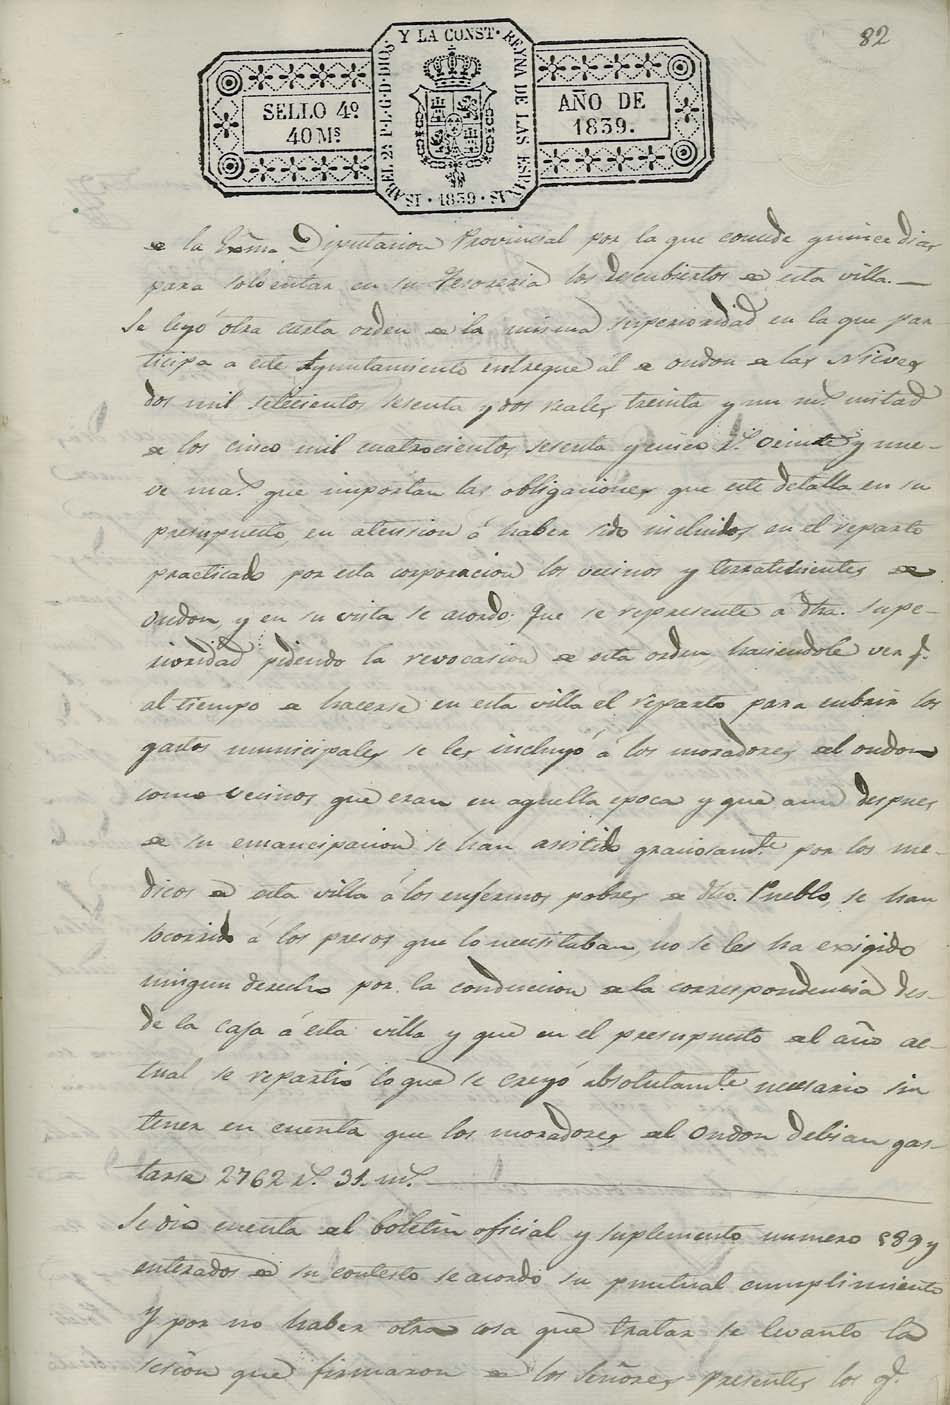 82
SELLO 4º
40 Ms.
ISABEL 2ª P.L.G.D.DIOS. Y LA CONST. REYNA DE LAS ESPAÑAS
· 1839 ·
AÑO DE
1839.
de la Exma. Diputacion Provincial por la que concede quince dias
para solventar en su Tesoreria los descubiertos de esta villa. —
Se leyó otra carta orden de la misma superioridad en la que par
ticipa a este Ayuntamiento entregue al de ondon de las Nieves
dos mil setecientos sesenta y dos reales treinta y un ms. mitad
de los cinco mil cuatrocientos sesenta y cinco rs. veinte y nue-
ve ms. que importan las obligaciones que este detalla en su
presupuesto, en atension á haber sido incluidos en el reparto
practicado por esta corporacion los vecinos y terratenientes de
ondon, y en su vista se acordo: que se represente a dha. supe-
rioridad pidiendo la revocasion de esta orden haciendole ver q.
al tiempo de hacerse en esta villa el reparto para cubrir los
gastos municipales se les incluyó á los moradores del ondon
como vecinos que eran en aquella epoca y que aun despues
de su emancipacion se han asistido graciosamte. por los me-
dicos de esta villa á los enfermos pobres de dho. Pueblo, se han
socorrido á los presos que lo necesitaban, no se les ha exigido
ningun derecho por la conduccion de la correspondencia des-
de la caja á esta villa y que en el presupuesto del año ac-
tual se repartió lo que se creyó absolutamte. necesario sin
tener en cuenta que los moradores del Ondon debian gas-
tarse 2762 rs. 31. ms. —
Se dio cuenta del boletin oficial y suplemento numero 589 y
enterados de su contesto se acordo su puntual cumplimiento
Y por no haber otra cosa que tratar se levanto la
sesion que firmaron de los Señores presentes los q.